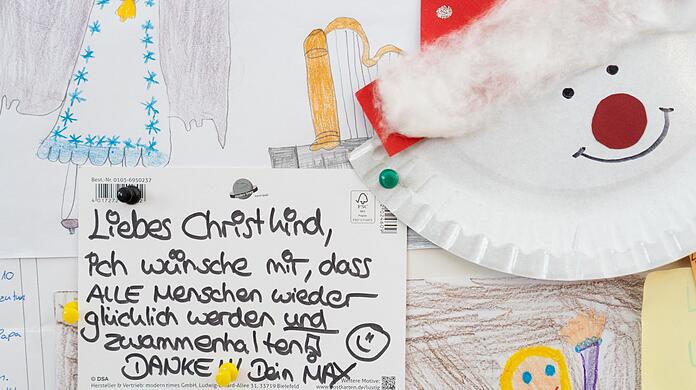 Best.-Nr. 0103-6950237
FSC
Liebes Christkind,
Ich wünsche mir, dass
ALLE Menschen wieder
glücklich werden und
zusammenhalten!
DANKE!!! Dein MAX
© DSA
Weitere Motive:
Hersteller & Vertrieb: modern times GmbH, Ludwig-Erhard-Allee 31, 33719 Bielefeld
10
Papa